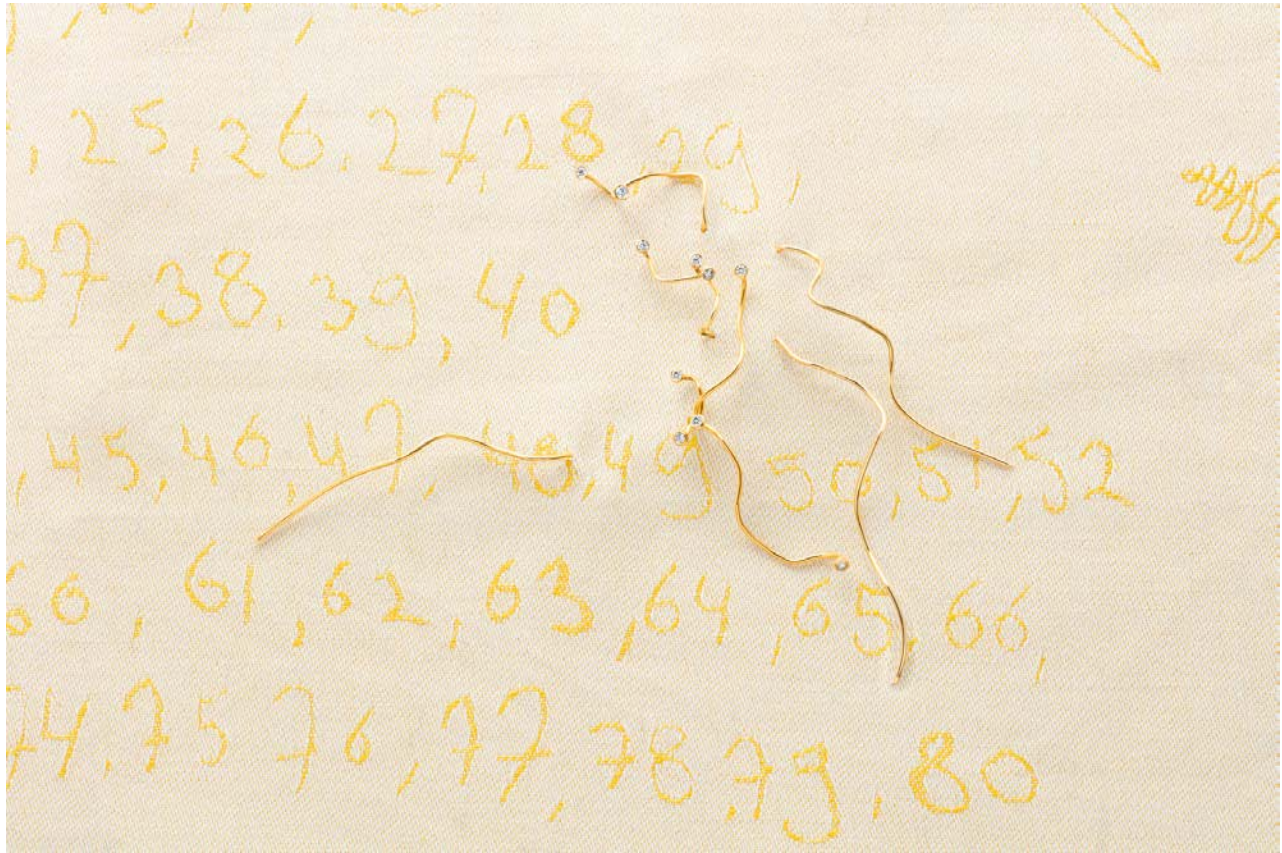 , 25, 26, 27, 28, 29,
37, 38, 39, 40
, 45, 46, 47, 48, 49 50, 51, 52
60, 61, 62, 63, 64, 65, 66,
74, 75 76, 77, 78, 79, 80